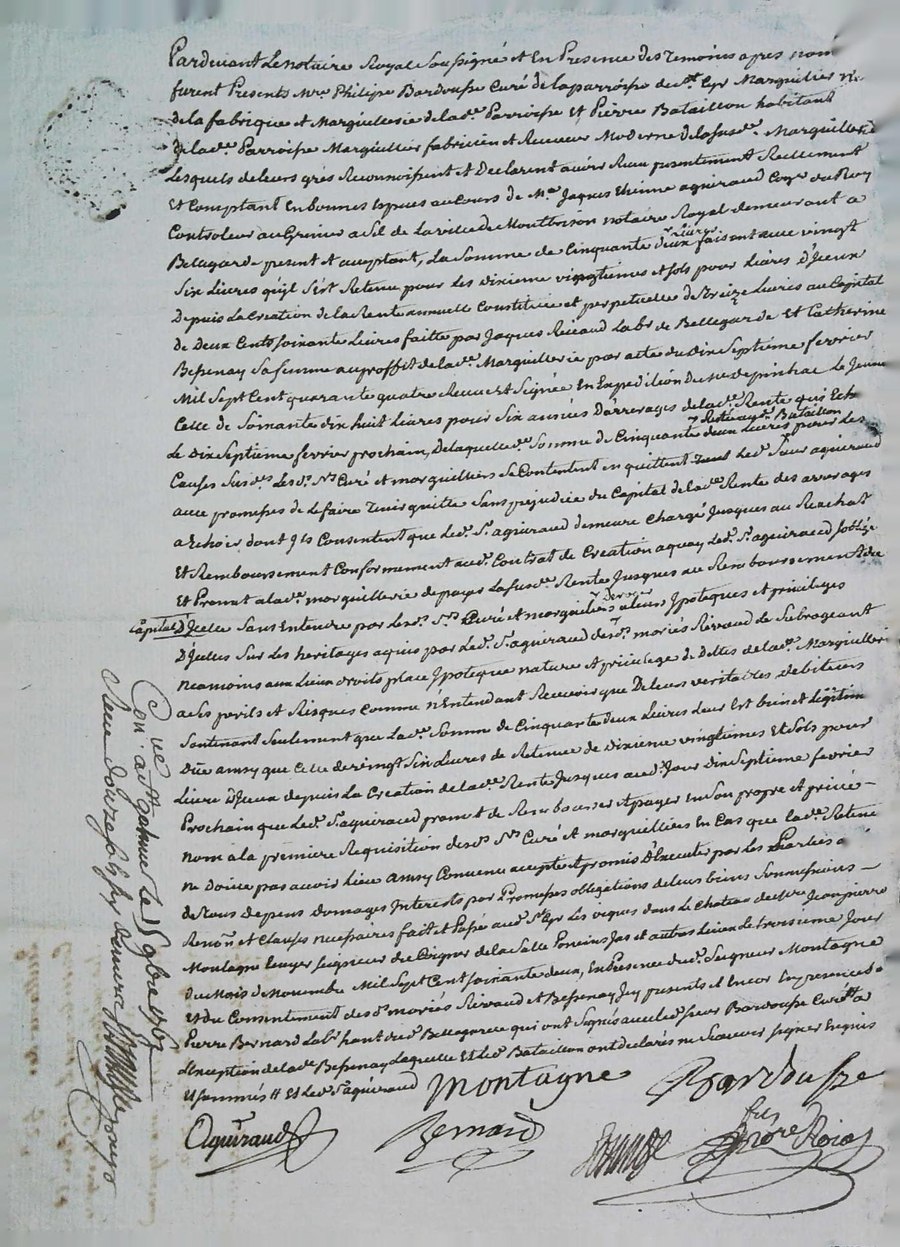 Pardevant Le notaire Royal Soussigné et En Presence des Temoins apres nom
furent Presents Mre Philipe Bardousse Curé de la parroisse de St Cyr Marguillier
de la fabrique et Marguillerie de lade. Parroisse Et Pierre Bataillon habitant
de lade. Parroisse Marguillier fabricien et Receveur Moderne de la susde. Marguillerie
Lesquels de leurs grés Reconnoissent et Declarent avoir Receu presentement Reellement
Et Comptant En bonnes especes au cours de Me. Jaques Etienne aguiraud Coner du Roy
Controleur au Grenier a Sel de La ville de Montbrison notaire Royal demeurant a
Bellegarde present et acceptant, La Somme de Cinquante deux Livres faisant avec vingt
Six Livres qu'il S'est Retenu pour Les dixieme vingtiemes et Sols pour Livres D'Iceux
Depuis La Creation de La Rente annuelle Constituée et perpetuelle de Treize Livres au Capital
de Deux Cent Soixante Livres faitte par Jaques Rivaud Labr de Bellegarde Et Catherine
Bessenay Sa femme au proffit de lade. Marguillerie par acte du Dix Septième fevrier
Mil Sept Cent quarante quatre Receu et Signée En Expedition Du Me Depinhac Le Jeune
Celle de Soixante dix huit Livres pour Six années D'arrerages de lade. Rente qui Ech
Le Dix Septieme fevrier prochain, De laquelle de. Somme de Cinquante deux Livres pour Les
Receue par Bataillon
Causes Susdes Lesds. Srs Curé et Marguilliers Se Contentent en quittent Led. Sieur aguiraud
avec promesses de Le faire Tenir quitte Sans prejudice du Capital de lade. Rente des arrerages
a Echoir dont Ils Consentent que Led. Sr. aguiraud demeure Chargé Jusques au Rachat
Et Remboursement Conformement aud. Contrat de Creation a quoy Led. Sr. aguiraud S'oblige
Et Promet a lade. Marguillerie de payer La susde. Rente Jusques au Remboursement du
Capital D'Icelle Sans Entendre par Lesds. Srs Curé et Marguilliers deroger a Leurs Ipoteques et privileges
D'Icelles Sur Les heritages aquis par Led. Sr. aguiraud desds. mariés Rivaud Le Subrogeant
neamoins aux Lieux droits place Ipoteque nature et privilege de Dettes de lade. Marguillerie
a Ses perils et Risques Comme n'Entendant Recevoir que De leurs veritables debiteurs
Soutenant Seulement que Lade. Somme de Cinquante deux Livres Leur Est bien et Légitim
Düe ainsy que Celle de vingt Six Livres de Retenue de Dixieme vingtiemes Et Sols pour
Livre D'Iceux depuis La Creation de lade. Rente Jusques aud. Jour Dix Septieme fevrier
Prochain que Led. Sr. aguiraud promet de Rembourser et payer En Son propre et privé
nom a la premiere Requisition desds. Srs Curé et Marguilliers En Cas que Lade. Retenue
ne doive pas avoir Lieu ainsy Convenu accepté et promis D'Executer par Les Parties a
de tous Depens Domages Interests par Promesses obligations de Leurs biens Soumissions
Renon. et Clauses necessaires fait et Passé aud. St Cyr Les vignes dans Le Chateau de Mre Jean pierre
Montagne Ecuyer Seigneur de Poncins Jas et autres Lieux Le troisieme Jour
du Mois de Novembre Mil Sept Cent Soixante deux, En Presence dud. Seigneur Montagne
et du Consentement desds. mariés Rivaud et Bessenay Icy presents et Encor En presence de
Pierre Bernard Labr habitant dud. Bellegarde qui ont Signés avec Led. Sieur Bardousse Curé a
L'Exception de lade. Bessenay Laquelle Et Led. Bataillon ont declarés ne Scavoir Signer Enquis
et Sommés Et Led. Sr aguiraud
Montagne
Bardousse
Aguiraud
Bernard
Con. a St Galmier Le 15 9bre 1762
Receu douze Sols Six deniers